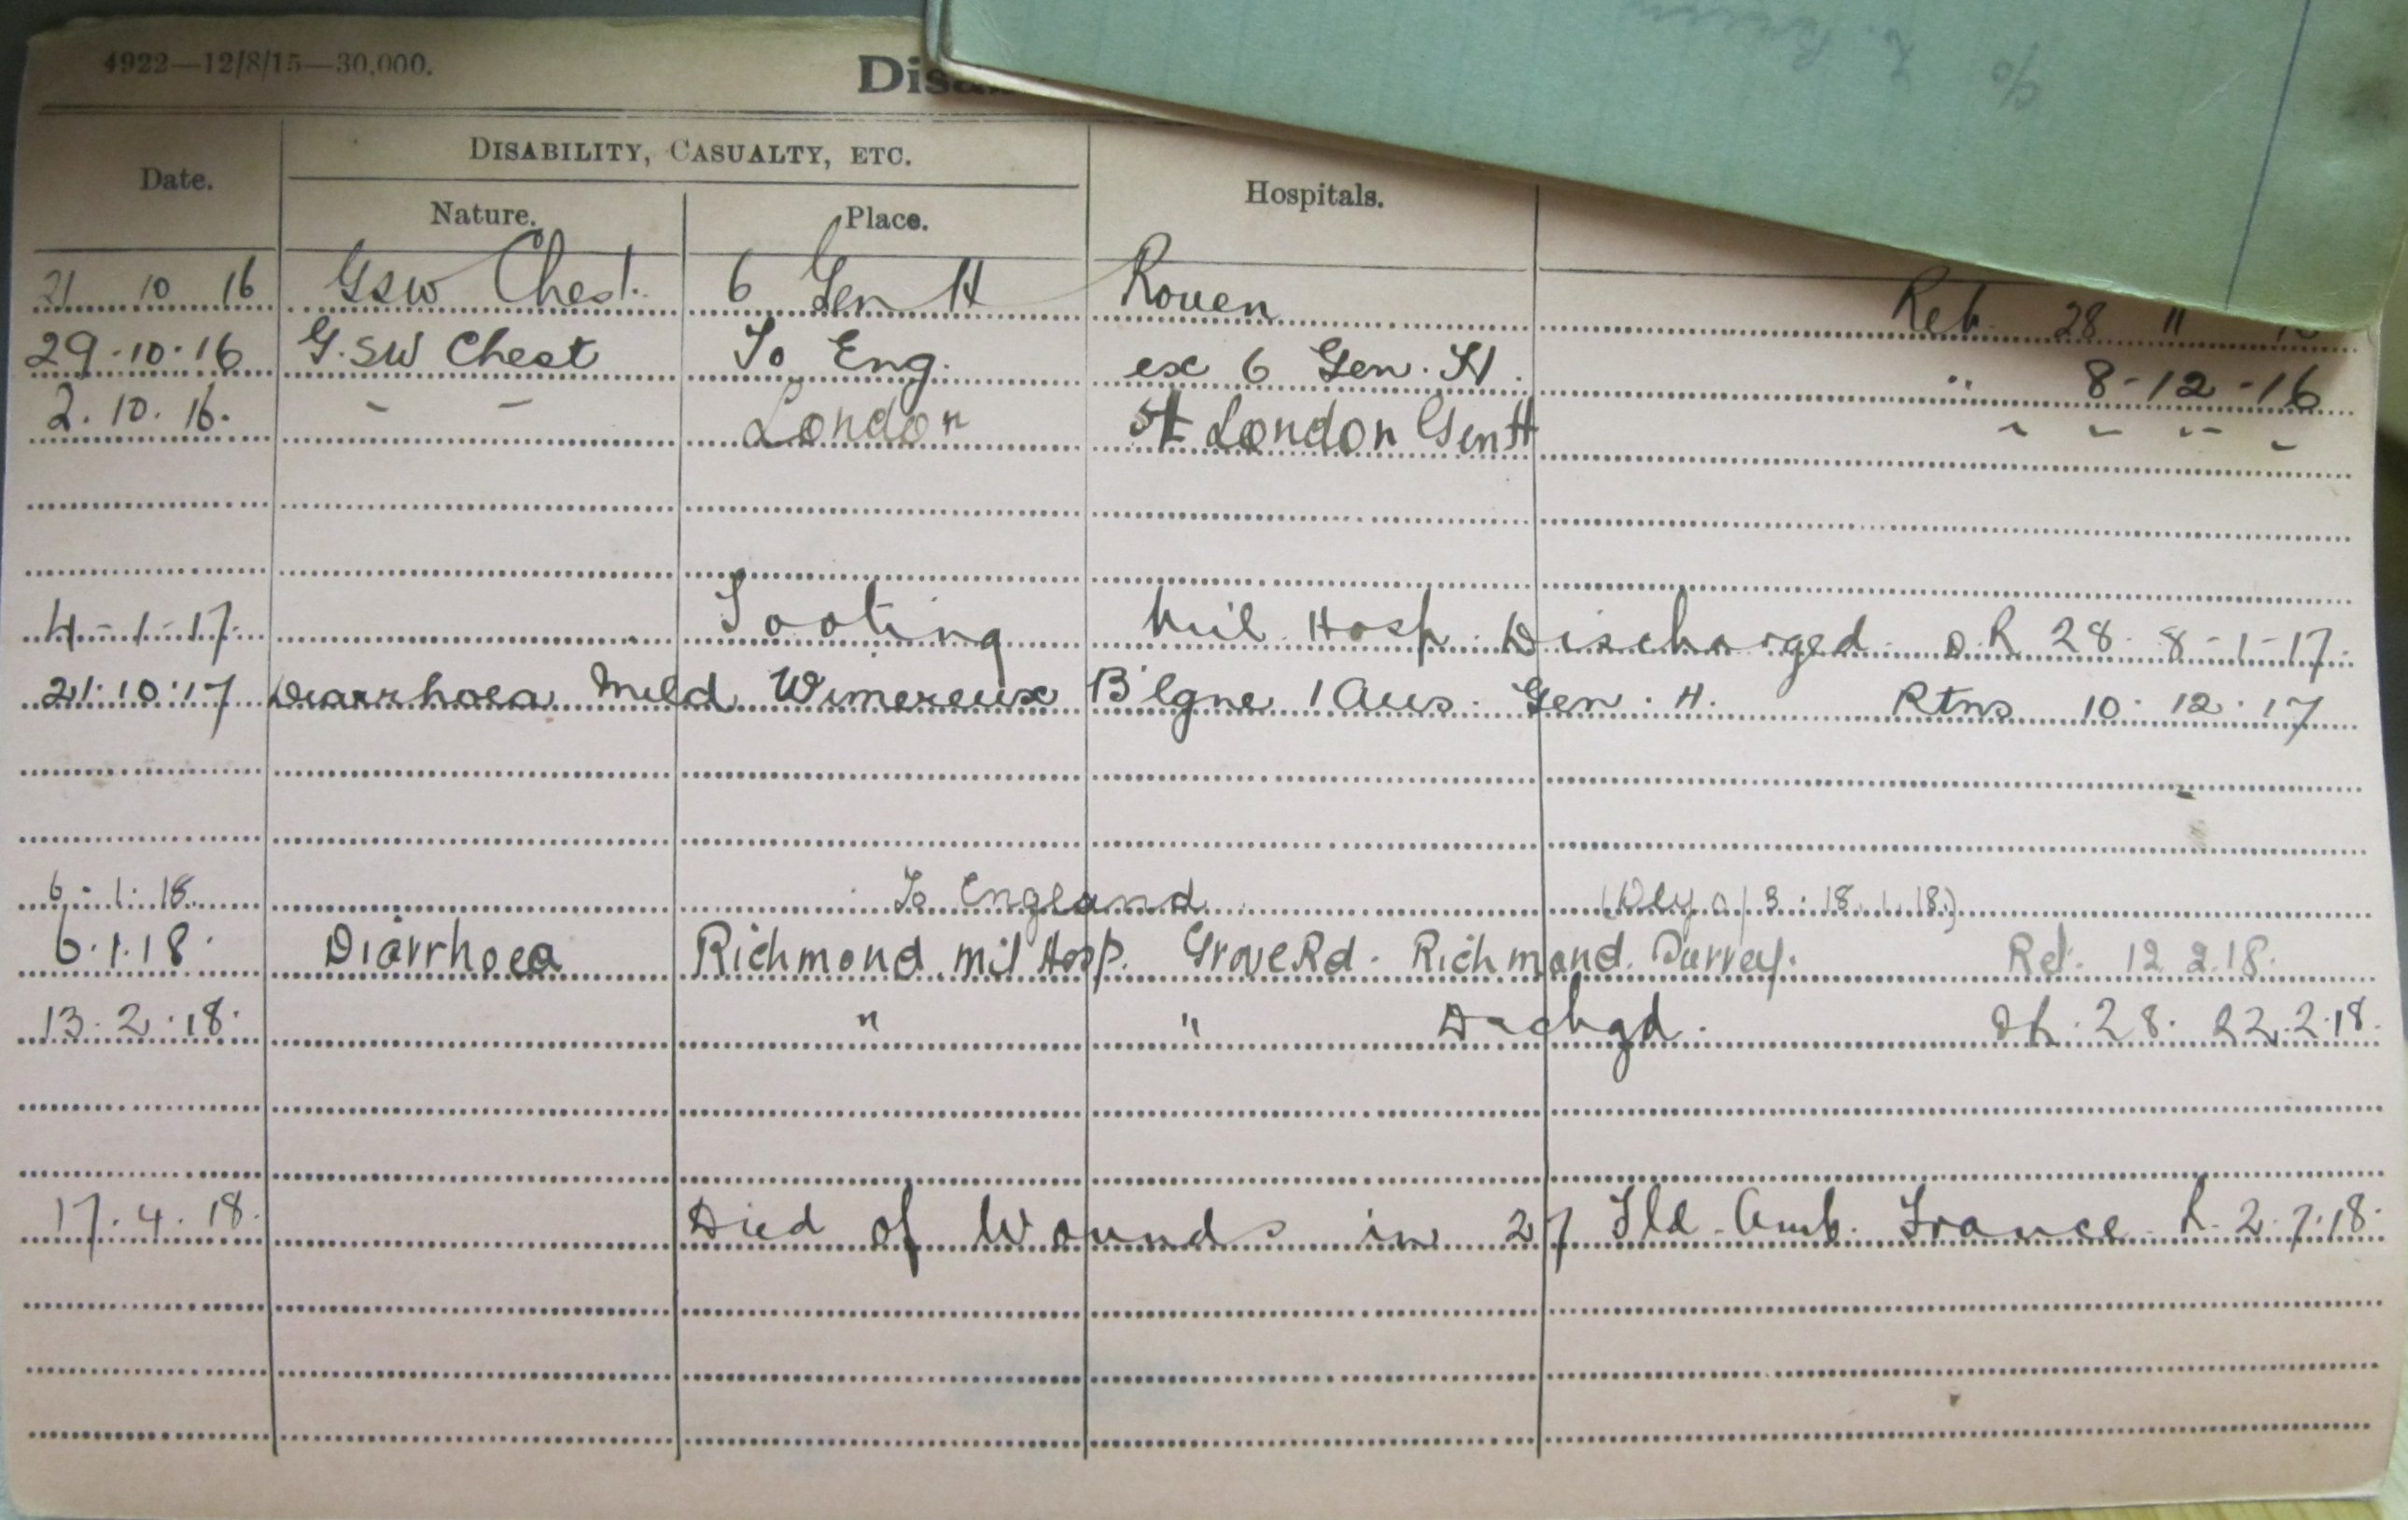 4922—12/8/15—30,000.
Date. DISABILITY, CASUALTY, ETC. Hospitals.
Nature. Place.
21 10 16 GSW Chest. 6 Gen H Rouen 28 11
29.10.16 G.SW Chest To Eng. ex 6 Gen. H. " 8-12-16
2. 10. 16. - - London London Gen H - - - -
4-1-17. Tooting Mil. Hosp. Discharged. 28. 8-1-17.
21.10.17 Diarrhoea Mild Wimereux B'lgne 1 Aus. Gen. H. Rtns 10. 12. 17
6.1.18. To England 18.1.18)
6.1.18. Diarrhoea Richmond. Mil Hosp. Grove Rd. Richmond. Surrey. 12.2.18.
13.2.18. " " 28. 22.2.18.
17.4.18. Died of Wounds in 27 Fld. Amb. France 2.7.18.